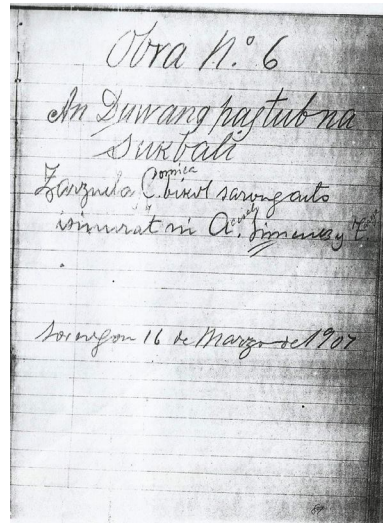 Obra N.º 6
An Duwang pagtubna
Sukbali
Zarzuela Comica bikol sarong acto
isinurat ni A. Jimenez y
Sorsogon 16 de Marzo de 1907